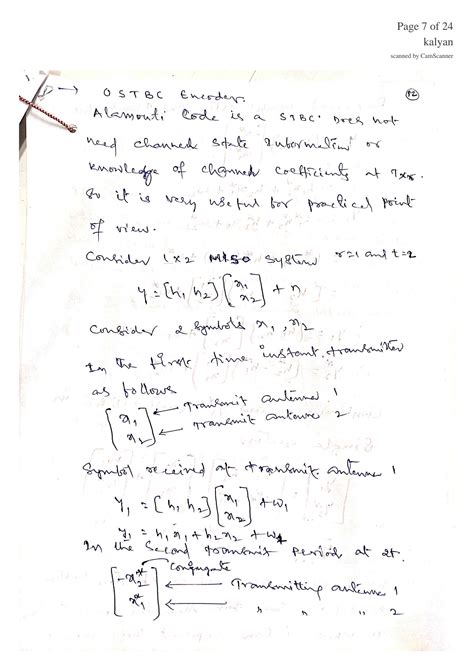 Page 7 of 24
kalyan
scanned by CamScanner
OSTBC Encoder.
92
Alamouti Code is a STBC. Does not
need channel state Information or
knowledge of channel coefficients at Txr.
So it is very useful for practical point
of view.
Consider 1x2 MISO System r=1 and t=2
y = [h₁ h₂] [x₁ x₂] + n
Consider 2 symbols x₁, x₂
In the first time instant transmitted
as follows
[x₁ ← Transmit antenna 1
x₂] ← Transmit antenna 2
Symbol received at transmit antenna 1
y₁ = [h₁ h₂] [x₁ x₂] + w₁
y₁ = h₁x₁ + h₂x₂ + w₁
In the Second transmit period at 2t.
Conjugate
[-x₂* ← Transmitting antenna 1
x₁*] ← " " " 2